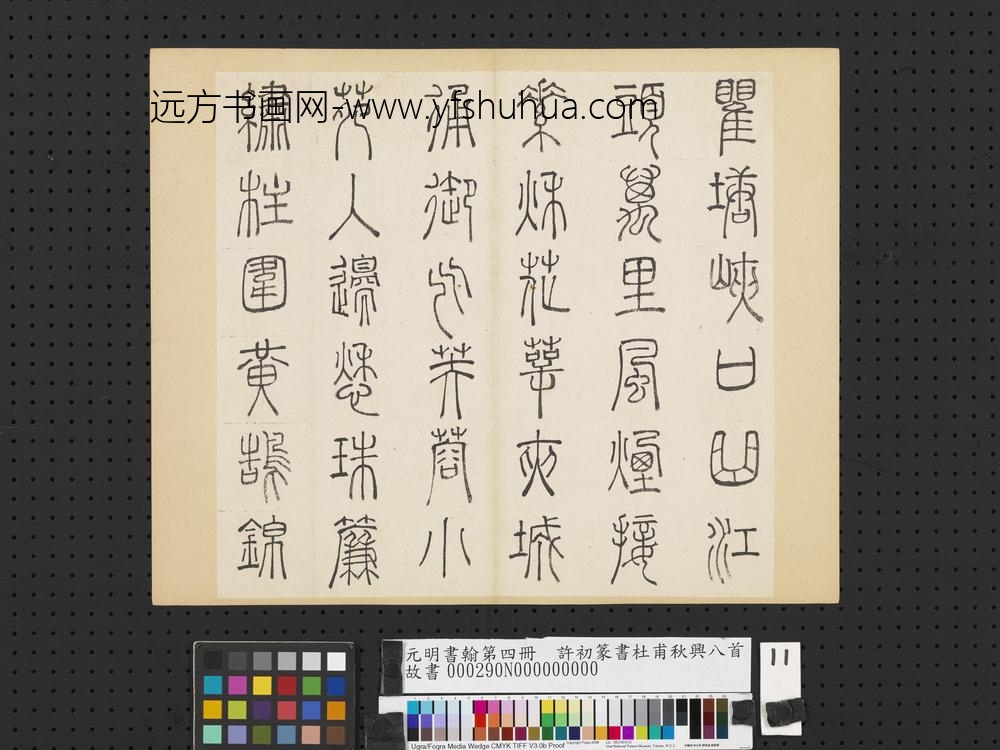 瞿塘峽口曲江
頭萬里風煙接
素秋花萼夾城
通御气芙蓉小
苑入邊愁珠簾
繡柱圍黃鵠錦
远方书画网-www.yfshuhua.com
元明書翰第四冊　許初篆書杜甫秋興八首
故書 000290N000000000
11
Ugra/Fogra Media Wedge CMYK TIFF V3.0b Proof